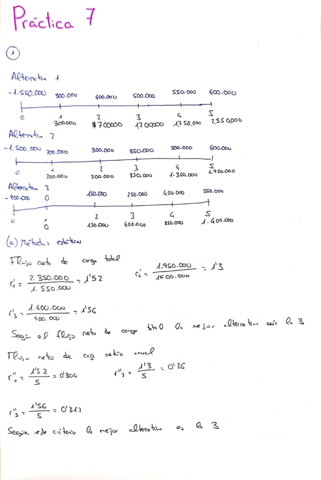 Práctica 7
1
Alternativa 1
-1.550.000 300.000 400.000 500.000 550.000 600.000
0 1 2 3 4 5
300000 $700000 1200000 1750.000 2.350.000
Alternativa 2
-1.500.000 200.000 300.000 350.000 500.000 600.000
0 2 3 4 5
200.000 500.000 1.350.000 1.950.000
Alternativa 3
-900.000 0 150.000 250.000 450.000 550.000
0 2 3 4 5
400.000 1.400.000
(a) Métodos estáticos
Flujo neto de caja total
r'₁ = 2.350.000 / 1.550.000 = 1'52 = 1'3
r'₃ = 1.400.000 / 900.000 = 1'56
Según el flujo neto de caja total la mejor alternativa es la 3
Flujo neto de caja medio anual
r''₁ = 1'52 / 5 = 0'304 r''₂ = 1'3 / 5 = 0'26
r''₃ = 1'56 / 5 = 0'312
Según este criterio la mejor alternativa es la 3